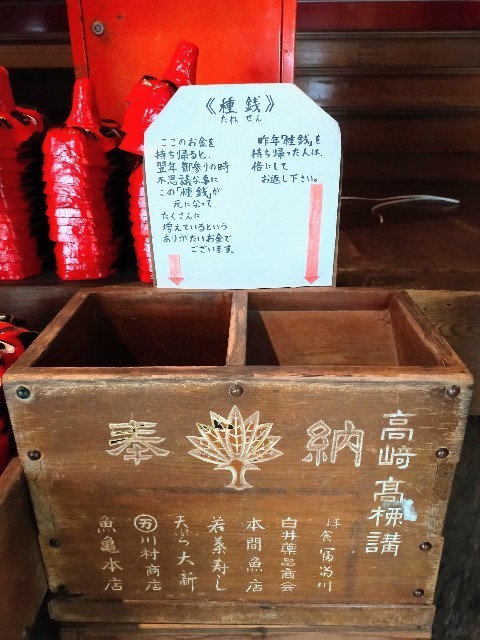 《種銭》
たね せん
ここのお金を
持ち帰ると、
翌年御参りの時
不思議な事に
この「種銭」が
元になって
たくさんに
増えているという
ありがたいお金で
ございます。
昨年「種銭」を
持ち帰った人は、
倍にして
お返し下さい。
奉納
高崎高標講
洋食富岡川
白井薬品商会
本間魚店
若菜寿し
天ぷら大新
万川村商店
魚亀本店